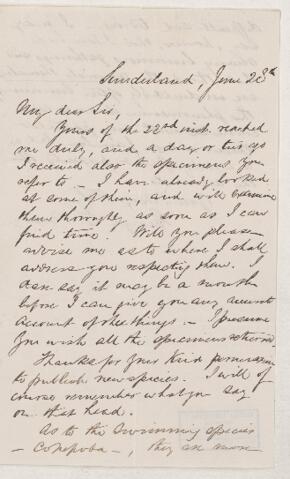 Sunderland, June 28th
My dear Sir,
Yours of the 22nd inst. reached
me duly, and a day or two ago
I received also the specimens you
refer to — I have already looked
at some of them, and will examine
them thoroughly as soon as I can
find time. Will you please
advise me as to where I shall
address you respecting them. I
dare say it may be a month
before I can give you any accurate
account of the things — I presume
you wish all the specimens returned
Thanks for your kind permission
to publish new species. I will of
course remember what you say
on that head.
As to the swimming species
— copepoda —, they are more